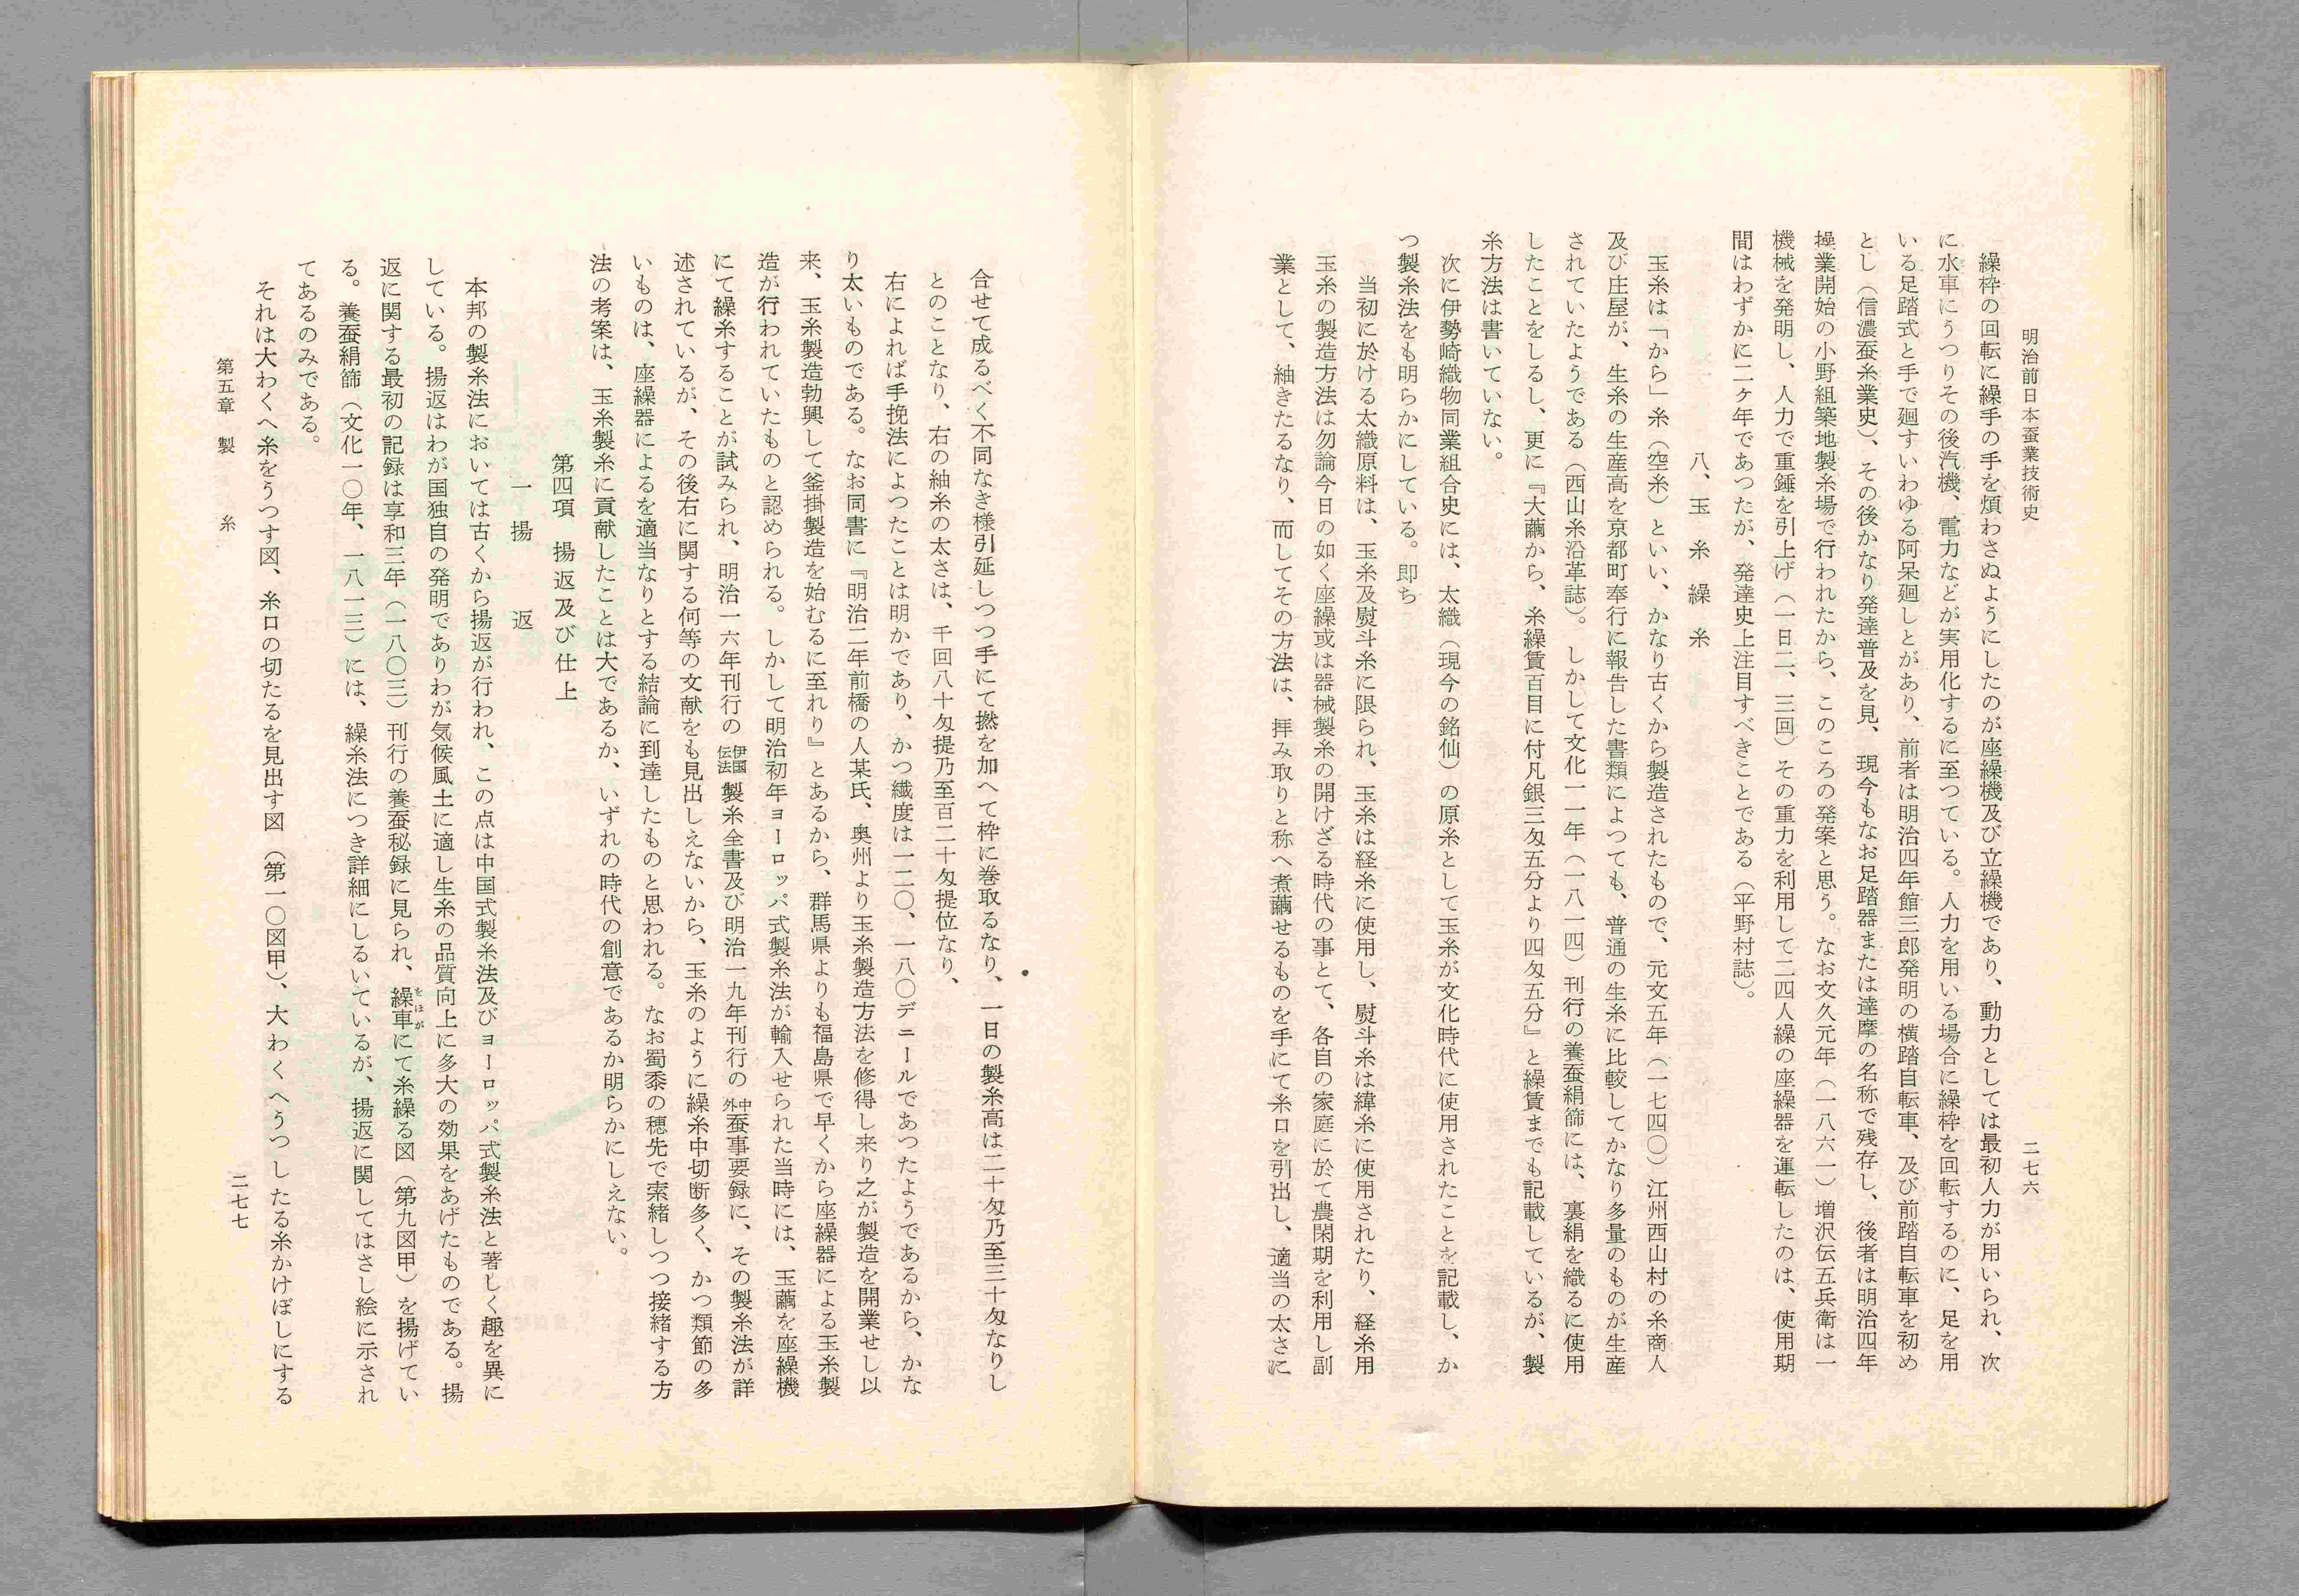 明治前日本蚕業技術史
二七六
繰枠の回転に繰手の手を煩わさぬようにしたのが座繰機及び立繰機であり、動力としては最初人力が用いられ、次
に水車にうつりその後汽機、電力などが実用化するに至つている。人力を用いる場合に繰枠を回転するのに、足を用
いる足踏式と手で廻すいわゆる阿呆廻しとがあり、前者は明治四年館三郎発明の横踏自転車、及び前踏自転車を初め
とし（信濃蚕糸業史）、その後かなり発達普及を見、現今もなお足踏器または達摩の名称で残存し、後者は明治四年
操業開始の小野組築地製糸場で行われたから、このころの発案と思う。なお文久元年（一八六一）増沢伝五兵衛は一
機械を発明し、人力で重錘を引上げ（一日二、三回）その重力を利用して二四人繰の座繰器を運転したのは、使用期
間はわずかに二ヶ年であつたが、発達史上注目すべきことである（平野村誌）。
八、玉糸繰糸
玉糸は「から」糸（空糸）といい、かなり古くから製造されたもので、元文五年（一七四〇）江州西山村の糸商人
及び庄屋が、生糸の生産高を京都町奉行に報告した書類によつても、普通の生糸に比較してかなり多量のものが生産
されていたようである（西山糸沿革誌）。しかして文化一一年（一八一四）刊行の養蚕絹篩には、裏絹を織るに使用
したことをしるし、更に『大繭から、糸繰賃百目に付凡銀三匁五分より四匁五分』と繰賃までも記載しているが、製
糸方法は書いていない。
次に伊勢崎織物同業組合史には、太織（現今の銘仙）の原糸として玉糸が文化時代に使用されたことを記載し、か
つ製糸法をも明らかにしている。即ち
当初に於ける太織原料は、玉糸及熨斗糸に限られ、玉糸は経糸に使用し、熨斗糸は緯糸に使用されたり、経糸用
玉糸の製造方法は勿論今日の如く座繰或は器械製糸の開けざる時代の事とて、各自の家庭に於て農閑期を利用し副
業として、紬きたるなり、而してその方法は、拝み取りと称へ煮繭せるものを手にて糸口を引出し、適当の太さに
合せて成るべく不同なき様引延しつつ手にて撚を加へて枠に巻取るなり、一日の製糸高は二十匁乃至三十匁なりし
とのことなり、右の紬糸の太さは、千回八十匁提乃至百二十匁提位なり、
右によれば手挽法によつたことは明かであり、かつ繊度は一二〇、一八〇デニールであつたようであるから、かな
り太いものである。なお同書に『明治二年前橋の人某氏、奥州より玉糸製造方法を修得し来り之が製造を開業せし以
来、玉糸製造勃興して釜掛製造を始むるに至れり』とあるから、群馬県よりも福島県で早くから座繰器による玉糸製
造が行われていたものと認められる。しかして明治初年ヨーロッパ式製糸法が輸入せられた当時には、玉繭を座繰機
にて繰糸することが試みられ、明治一六年刊行の伊国伝法製糸全書及び明治一九年刊行の中外蚕事要録に、その製糸法が詳
述されているが、その後右に関する何等の文献をも見出しえないから、玉糸のように繰糸中切断多く、かつ類節の多
いものは、座繰器によるを適当なりとする結論に到達したものと思われる。なお蜀黍の穂先で索緒しつつ接緒する方
法の考案は、玉糸製糸に貢献したことは大であるか、いずれの時代の創意であるか明らかにしえない。
第四項 揚返及び仕上
一 揚返
本邦の製糸法においては古くから揚返が行われ、この点は中国式製糸法及びヨーロッパ式製糸法と著しく趣を異に
している。揚返はわが国独自の発明でありわが気候風土に適し生糸の品質向上に多大の効果をあげたものである。揚
返に関する最初の記録は享和三年（一八〇三）刊行の養蚕秘録に見られ、繰車をほがにて糸繰る図（第九図甲）を揚げてい
る。養蚕絹篩（文化一〇年、一八一三）には、繰糸法につき詳細にしるいているが、揚返に関してはさし絵に示され
てあるのみである。
それは大わくへ糸をうつす図、糸口の切たるを見出す図（第一〇図甲）、大わくへうつしたる糸かけぼしにする
第五章 製糸
二七七